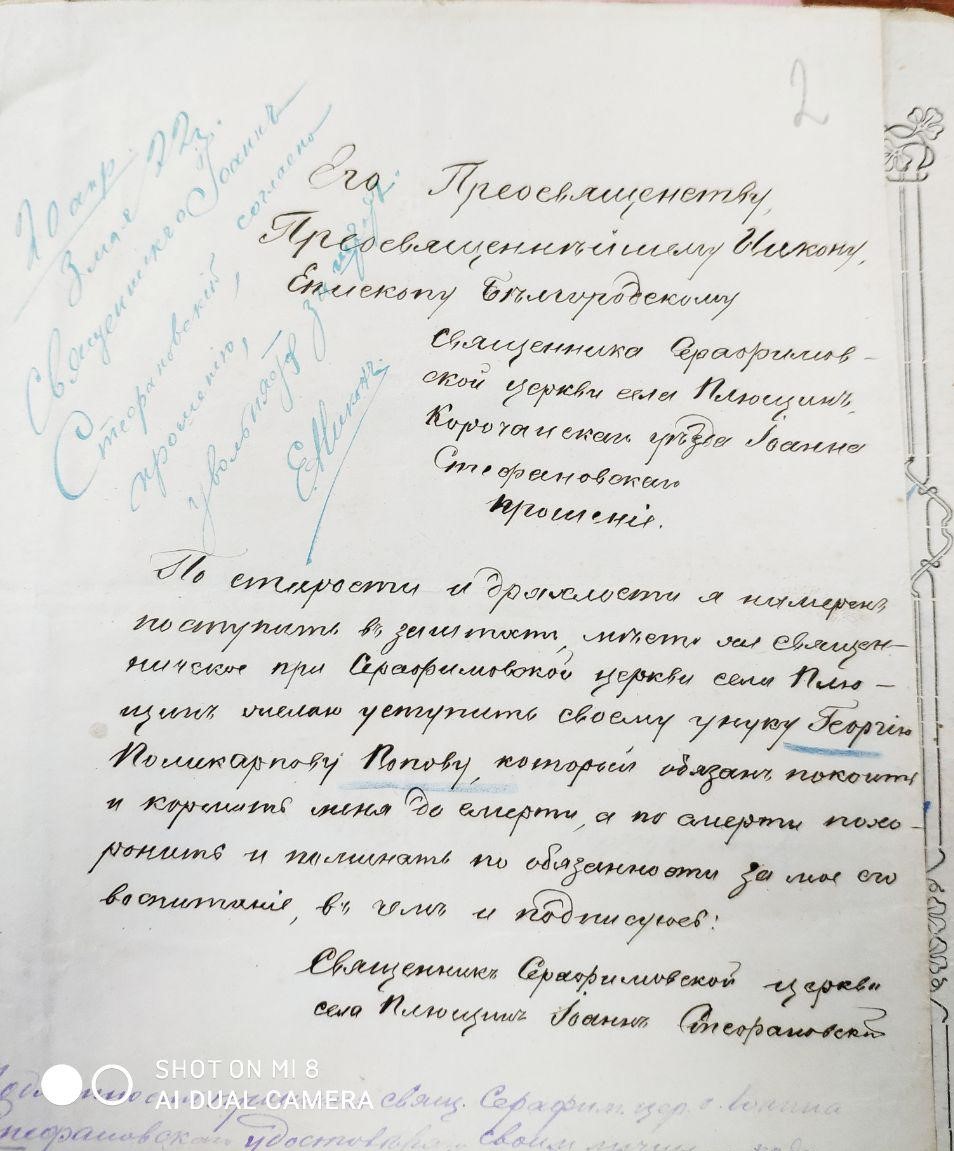 2
20 апр.
3 мая 22 г.
Священникъ Іоаннъ
Стефановскій, согласно
прошенію,
увольняется за штатъ.
Е. Никонъ
Его Преосвященству,
Преосвященнѣйшему Никону,
Епископу Бѣлгородскому
Священника Серафимов-
ской церкви села Плющинъ,
Корочанскаго уѣзда Іоанна
Стефановскаго
прошеніе.
По старости и дряхлости я намеренъ
поступить въ заштатъ, мѣсто же священ-
ническое при Серафимовской церкви села Плю-
щинъ желаю уступить своему унуку Георгію
Поликарпову Попову, который обязанъ покоить
и кормить меня до смерти, а по смерти похо-
ронить и поминать по обязанности за мое его
воспитаніе, въ чемъ и подписуюсь:
Священникъ Серафимовской церкви
села Плющинъ Іоаннъ Стефановскій
свящ. Серафим. цер. о. Іоанна
Стефановскаго удостовѣряю своим
SHOT ON MI 8
AI DUAL CAMERA